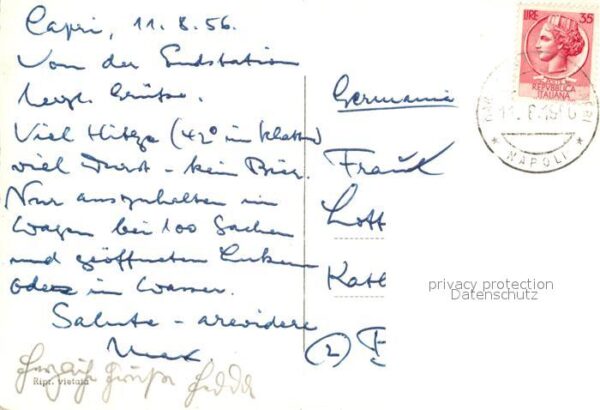 Capri, 11.8.56.
Von der Endstation
herzl. Grüße.
Viel Hitze (42° im Schatten)
viel Durst - kein Bier.
Nur auszuhalten im
Wagen bei 100 Sachen
und geöffneten Luken
oder im Wasser.
Salute - arevidere
Max.
Herzliche Grüße Hedda
Ripr. vietata
LIRE 35
REPVBBLICA
ITALIANA
11. 8. 56
* NAPOLI *
Germania
Fräul
Lott
Katt
(2) F
privacy protection
Datenschutz